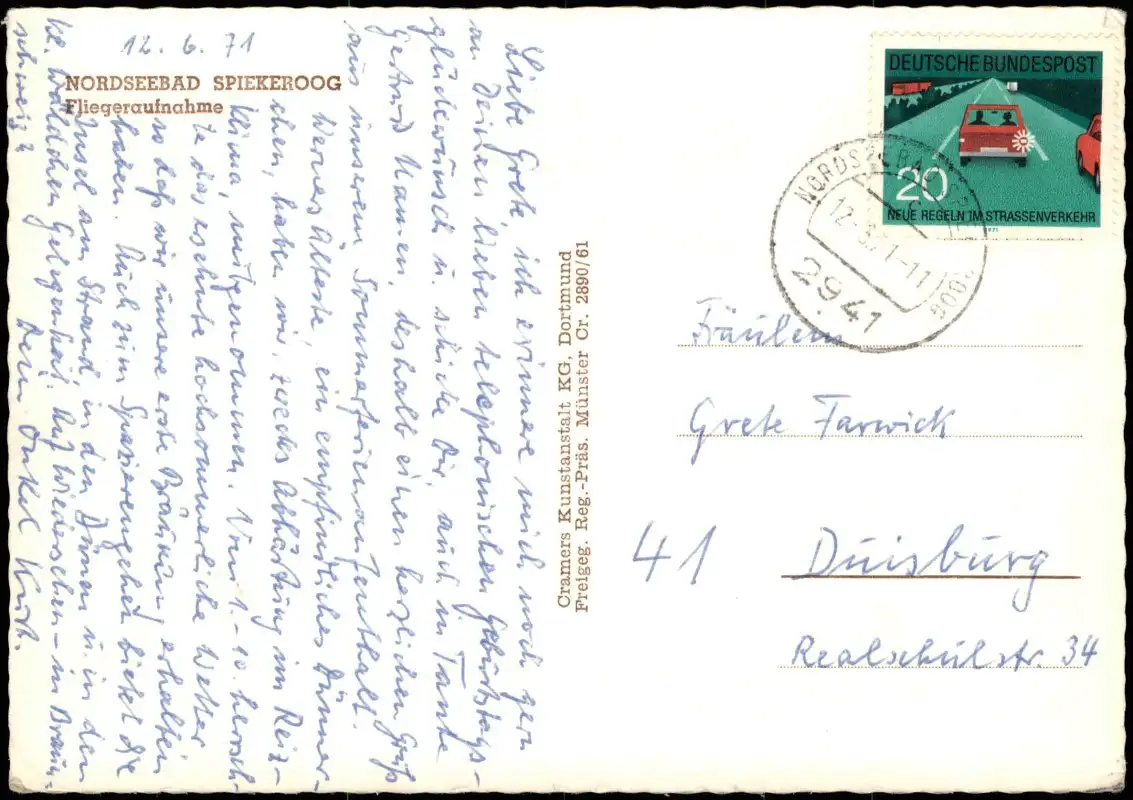 12. 6. 71
NORDSEEBAD SPIEKEROOG
Fliegeraufnahme
Liebe Grete, ich erinnere mich noch gern
an Deinen lieben telephonischen Geburtstags-
glückwunsch u. schicke Dir, auch in Tante
Gertrud Namen, deshalb einen herzlichen Gruß
aus unserem Sommerferienaufenthalt.
Werners Älteste, ein empfindliches Dünner-
chen, haben wir, zwecks Abhärtung im Reiz-
klima, mitgenommen. Vom 1. - 10. herrsch-
te das schönste hochsommerliche Wetter
so daß wir unsere erste Bräunung erhalten
haben. Auch zum Spazierengehen bietet die
Insel am Strand, in den Dünen u. in den
kl. Wäldchen Gelegenheit. Auf Wiedersehen - in Braun-
schweig?
Dein Onkel Kurt.
Cramers Kunstanstalt KG, Dortmund
Freigeg. Reg.-Präs. Münster Cr. 2890/61
DEUTSCHE BUNDESPOST
20
NEUE REGELN IM STRASSENVERKEHR
1971
NORDSEEBAD SPIEKEROOG
12.-6.71-11
2941
Fräulein
Grete Farwick
41 Duisburg
Realschulstr. 34